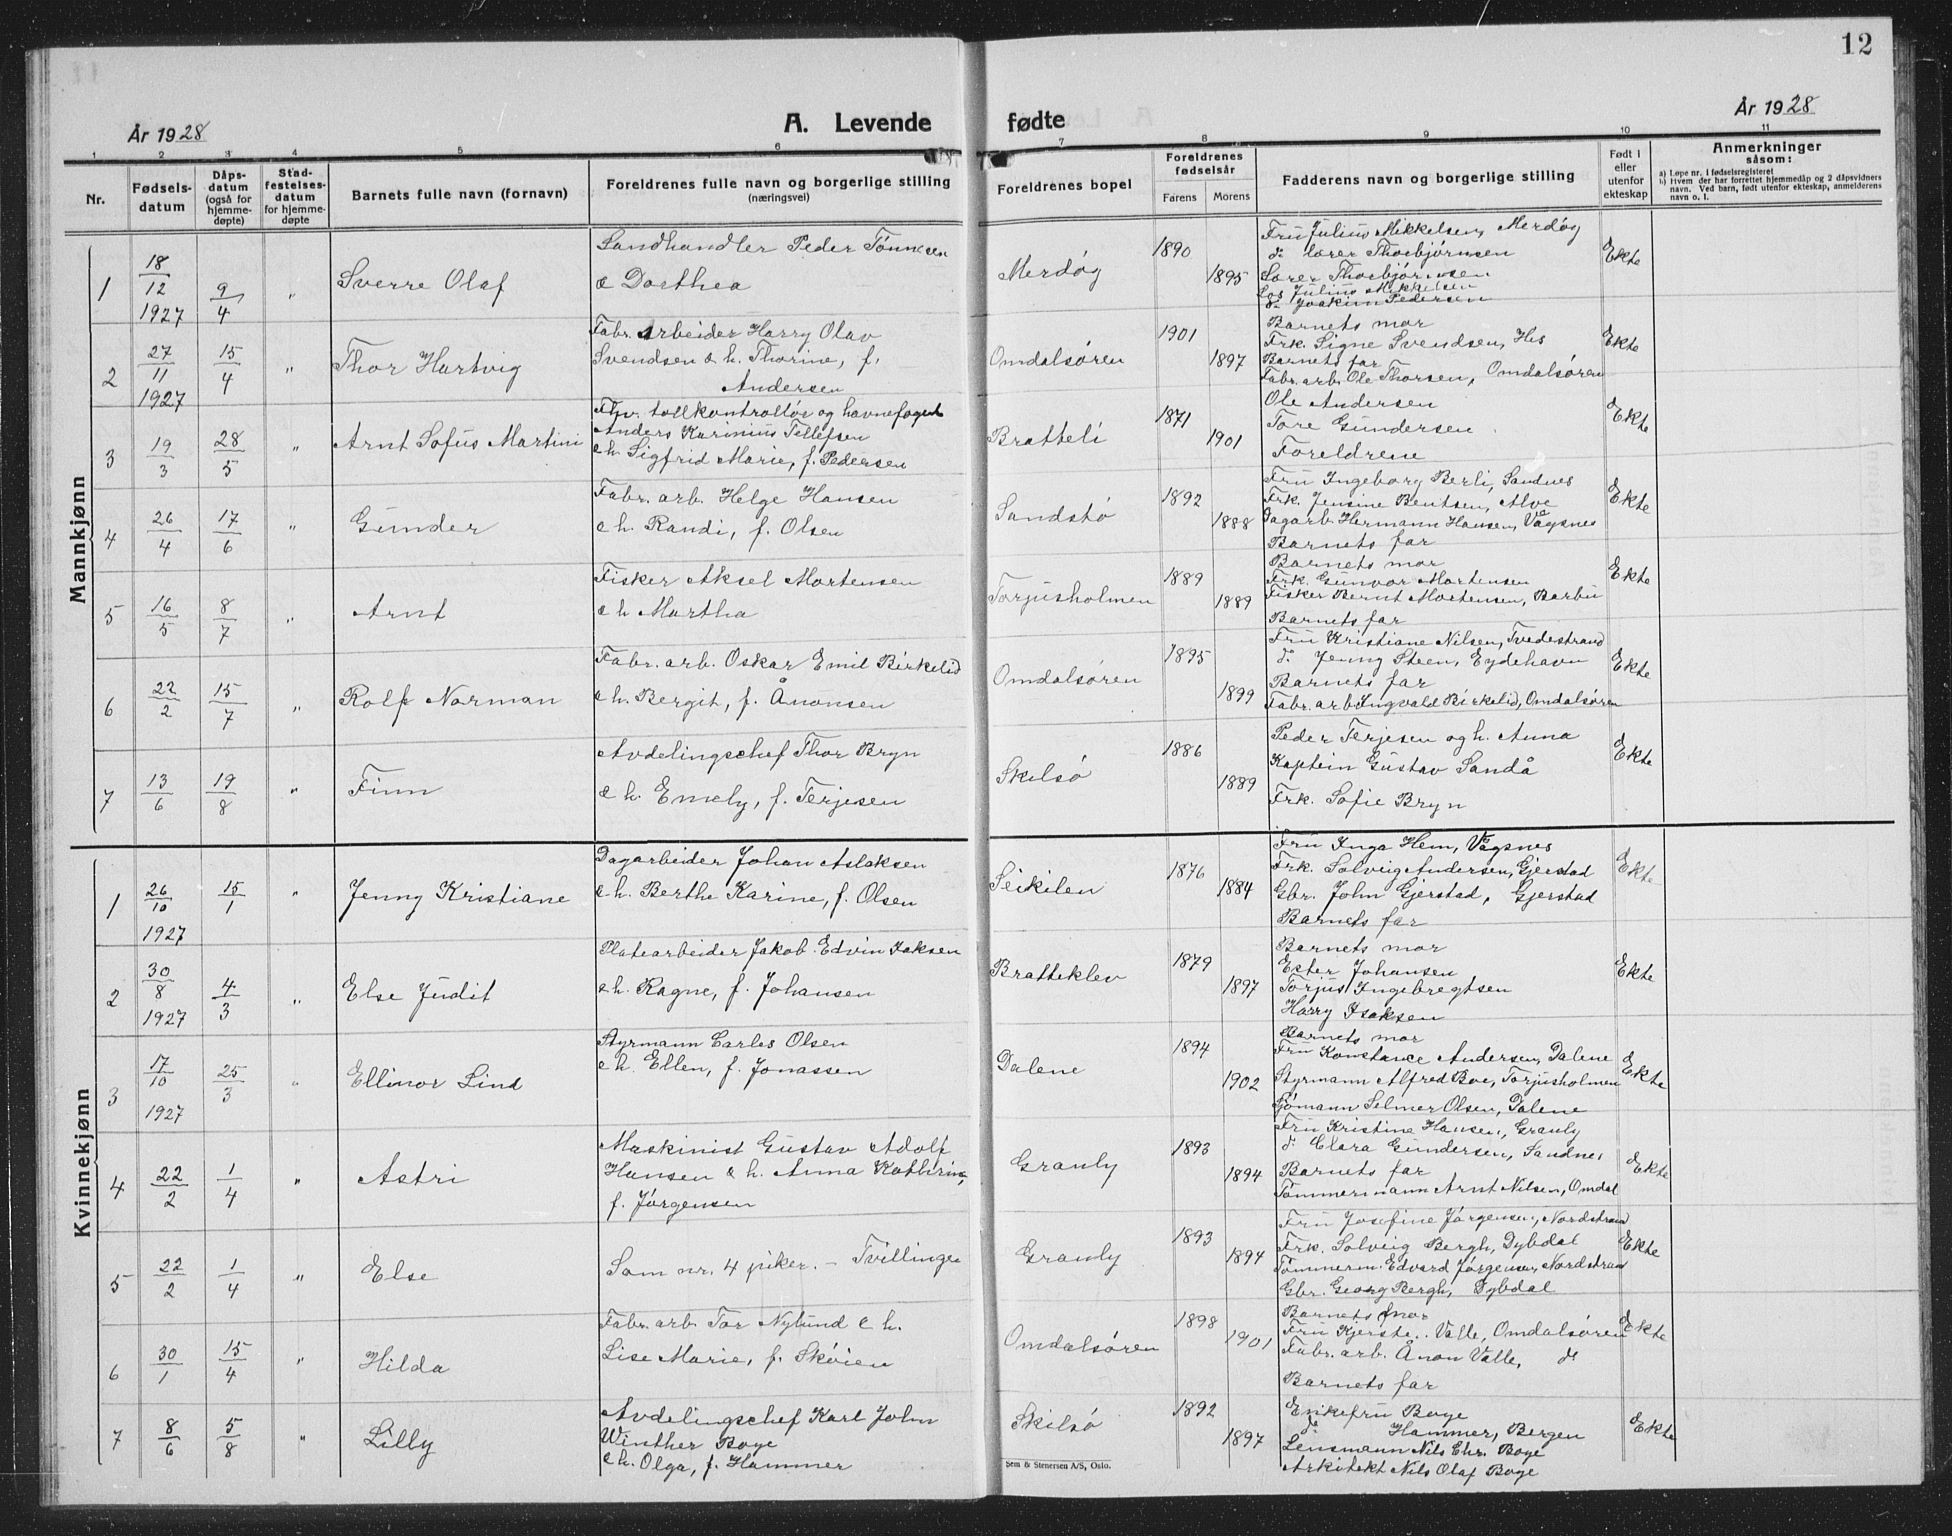 12
År 1928
A. Levende
fødte
År 1928
1 2 3 4 5 6 7 8 9 10 11
Nr.
Fødsels-
datum
Dåps-
datum
(også for
hjemme-
døpte)
Stad-
festelses-
datum
for hjemme-
døpte
Barnets fulle navn (fornavn)
Foreldrenes fulle navn og borgerlige stilling
(næringsvei)
Foreldrenes bopel
Foreldrenes
fødselsår
Farens Morens
Fadderens navn og borgerlige stilling
Født i
eller
utenfor
ekteskap
Anmerkninger
såsom:
a) Løpe nr. i fødselsregisteret
b) Hvem der har forrettet hjemmedåp og 2 dåpsvidners
navn. Ved barn, født utenfor ekteskap, anmelderens
navn o. l.
Mannkjønn
1
18/12
1927
9/4
"
Sverre Olaf
Landhandler Peder Tønnesen
& Dorthea
Merdøy
1890
1895
Fru Julius Mikkelsen, Merdøy
do lærer Thorbjørnsen
Lærer Thorbjørnsen
Los Julius Mikkelsen
do Joakim Pedersen
Ekte
2
27/11
1927
15/4
"
Thor Hartvig
Fabr. arbeider Harry Olav
Svendsen & h. Thorine, f.
Andersen
Omdalsøren
1901
1897
Barnets mor
Frk. Signe Svendsen, His
Barnets far
Fabr. arb. Ole Thorsen, Omdalsøren
Ekte
3
19/3
28/5
"
Arnt Sofus Martini
Fhv. tollkontrollør og havnefoged
Anders Karinius Tellefsen
& h. Sigfrid Marie, f. Pedersen
Bratteli
1871
1901
Ole Andersen
Tore Gundersen
Foreldrene
Ekte
4
26/4
17/6
"
Gunder
Fabr. arb. Helge Hansen
& h. Randi, f. Olsen
Sandstø
1892
1888
Fru Ingeborg Berli, Sandnes
Frk. Jensine Bentsen, Alve
Dagarb. Hermann Hansen, Vågsnes
Barnets far
Ekte
5
16/5
8/7
"
Arnt
Fisker Aksel Mortensen
& h. Martha
Torjusholmen
1889
1889
Barnets mor
Frk. Gunvor Mortensen
Fisker Bernt Mortensen, Barbu
Barnets far
Ekte
6
22/2
15/7
"
Rolf Norman
Fabr. arb. Oskar Emil Birkelid
& h. Bergit, f. Ånonsen
Omdalsøren
1895
1899
Fru Kristiane Nilsen, Tvedestrand
do Jenny Steen, Eydehavn
Barnets far
Fabr. arb Ingvald Birkelid, Omdalsøren
Ekte
7
13/6
19/8
"
Finn
Avdelingschef Thor Bryn
& h. Emely, f. Terjesen
Skilsø
1886
1889
Peder Terjesen og h. Anna
Kaptein Gustav Sandå
Frk. Sofie Bryn
Ekte
Kvinnekjønn
1
26/10
1927
15/1
"
Jenny Kristiane
Dagarbeider Johan Aslaksen
& h. Berthe Karine, f. Olsen
Seikilen
1876
1884
Fru Inga Hem, Vågsnes
Frk. Solveig Andersen, Gjerstad
Gbr. John Gjerstad, Gjerstad
Barnets far
Ekte
2
30/8
1927
4/3
"
Else Judit
Platearbeider Jakob Edvin Isaksen
& h. Ragne, f. Johansen
Bratteklev
1879
1897
Barnets mor
Ester Johansen
Torjus Ingebregtsen
Harry Isaksen
Ekte
3
17/10
1927
25/3
"
Ellinor Lind
Styrmann Carles Olsen
& h. Ellen, f. Jonassen
Dalene
1894
1902
Barnets mor
Fru Konstance Andersen, Dalene
Styrmann Alfred Boe, Torjusholmen
Sjømann Selmer Olsen, Dalene
Ekte
4
22/2
1/4
"
Astri
Maskinist Gustav Adolf
Hansen & h. Anna Kathrine,
f. Jørgensen
Granly
1893
1894
Fru Kristine Hansen, Granly
do Clara Gundersen, Sandnes
Barnets far
Tømmermann Arnt Nilsen, Omdal
Ekte
5
22/2
1/4
"
Else
Som nr. 4 piker. – Tvillinger
Granly
1893
1894
Fru Josefine Jørgensen, Nordstrand
Frk. Solveig Bergh, Dybdal
Tømmerm. Edvard Jørgensen, Nordstrand
Gbr. Georg Bergh, Dybdal
Ekte
6
30/1
15/4
"
Hilda
Fabr. arb. Tor Nylund & h.
Lise Marie, f. Skøien
Omdalsøren
1898
1901
Barnets mor
Fru Kjersti Valle, Omdalsøren
Fabr. arb. Ånon Valle, do
Barnets far
Ekte
7
8/6
5/8
"
Lilly
Avdelingschef Karl John
Winther Boye
& h. Olga, f. Hammer
Skilsø
1892
1897
Enkefru Boye
do Hammer, Bergen
Lensmann Nils Chr. Boye
Arkitekt Nils Olaf Boye
Ekte
Sem & Stenersen A/S, Oslo.